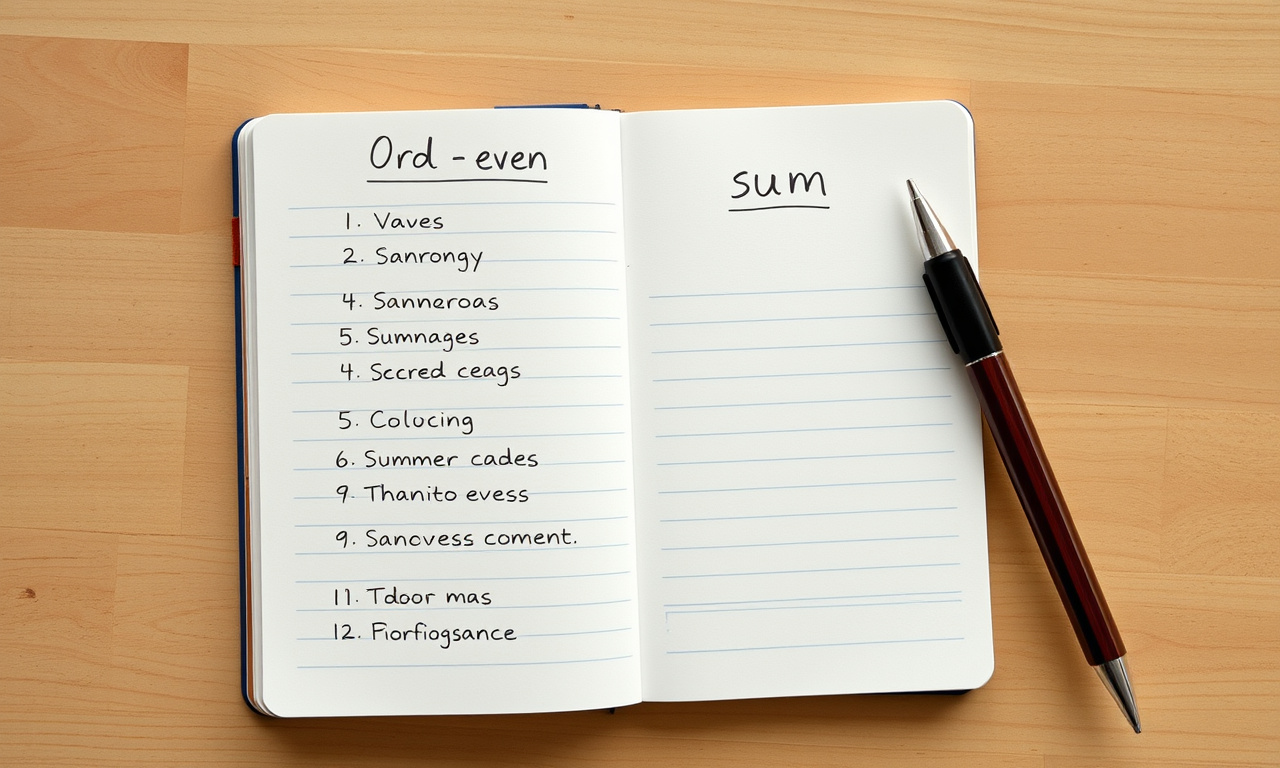 Ord - even
1. Vaves
2. Sanrongy
4. Sanneroas
5. Sumnages
4. Sccred ceags
5. Colucing
6. Summer cades
9. Thanito evess
9. Sanovess coment.
11. Tdoor mas
12. Fiorfiogsance
sum